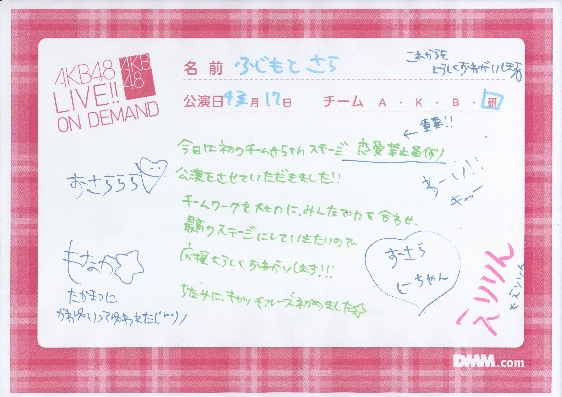 AKB48
LIVE!!
ON DEMAND
AKB
48
名前 ふじもと さら
これからも
よろしくおねがいします
公演日 4月17日 チーム A・K・B・研
重要!!
今日は初のチームからのステージ 恋愛禁止条例
公演をさせていただきました!!
おさららら
わーい!!
きゃー
チームワークを大切に、みんなで力を合わせ、
最高のステージにしていきたいので
応援よろしくおねがいします!!
ちなみに、キャッチフレーズ初めました
もなか
たかまつに
かわゆいってゆわれた
おーさら
ちゃん
えりりん
えりりん
DMM.com